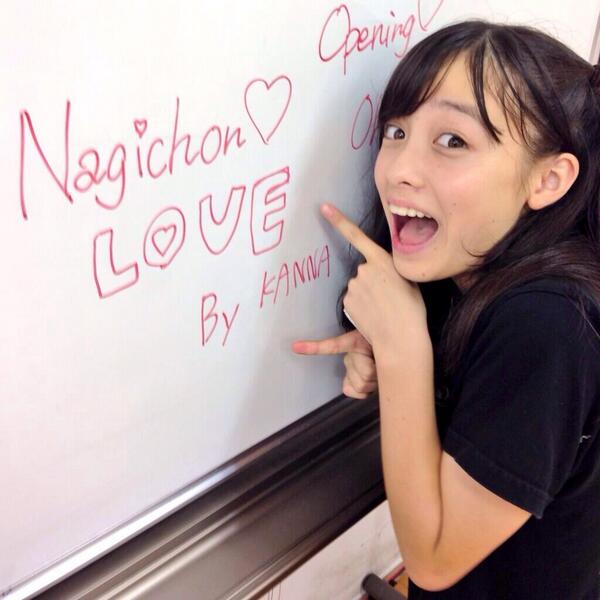 Opening♡
Nagichon♡
LOVE
By KANNA